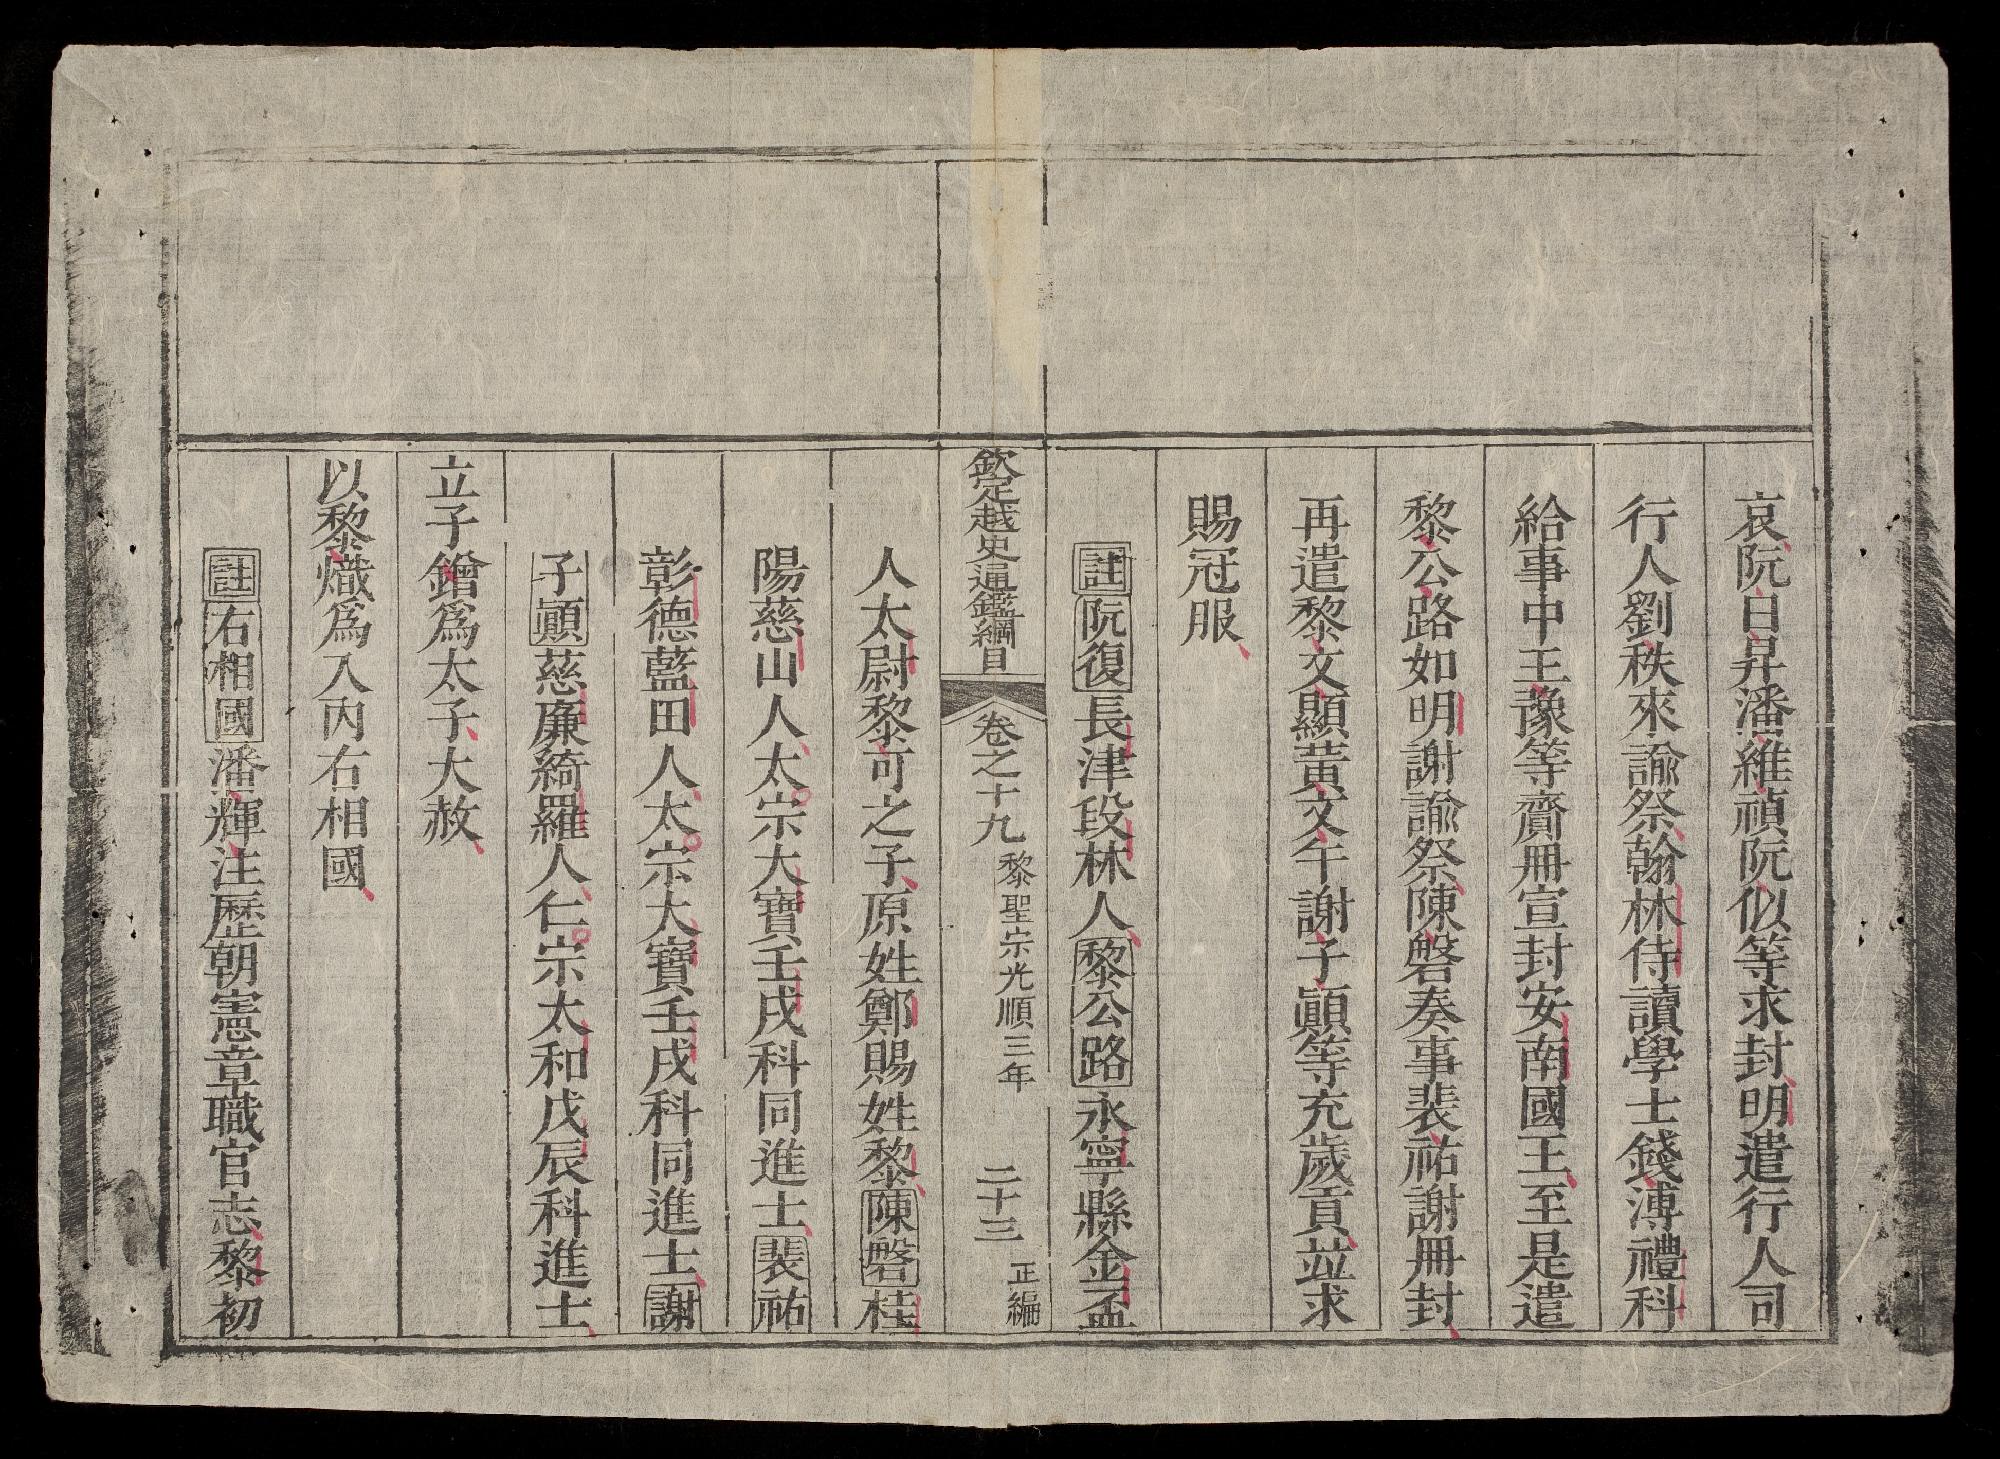 哀阮日昇潘維禎阮似等求封明遣行人司
行人劉秩來諭祭翰林侍讀學士錢溥禮科
給事中王豫等齎冊宣封安南國王至是遣
黎公路如明謝諭祭陳磐奏事裴祐謝冊封
再遣黎文顯黃文午謝子顚等充歲貢並求
賜冠服
註阮復長津段林人黎公路永寧縣金盃
欽定越史通鑑綱目 卷之十九 黎聖宗光順三年 二十三 正編
人太尉黎可之子原姓鄭賜姓黎陳磐桂
陽慈山人太宗大寶壬戌科同進士裴祐
彰德藍田人太宗大寶壬戌科同進士謝
子顚慈廉綺羅人仁宗太和戊辰科進士
立子鏳爲太子大赦
以黎熾爲入內右相國
註右相國潘輝注歷朝憲章職官志黎初